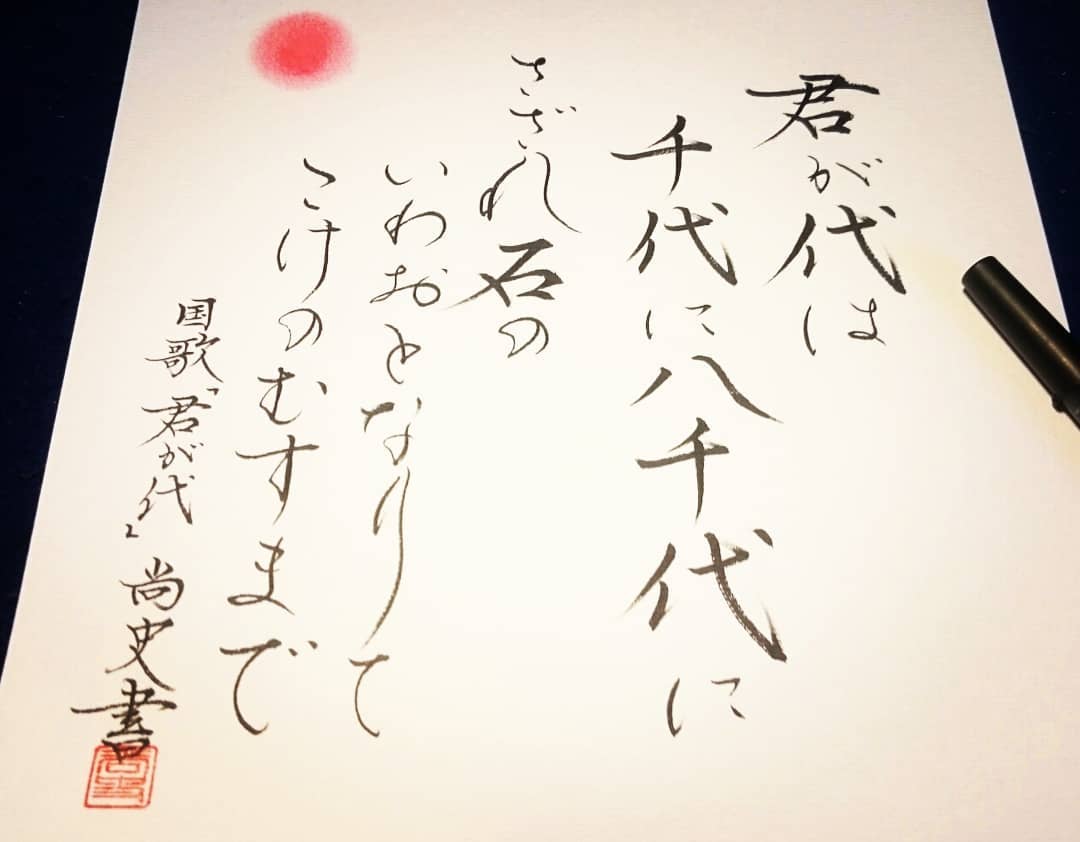 君が代は
千代に八千代に
さざれ石の
いわおとなりて
こけのむすまで
国歌「君が代」 尚史書